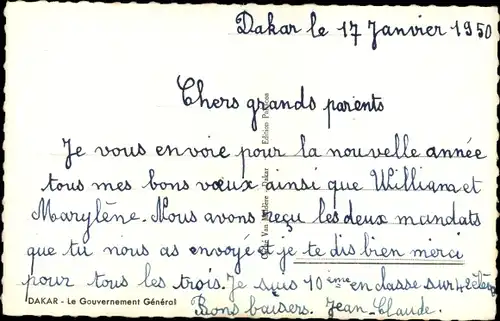 Dakar le 17 Janvier 1950
Chers grands parents
Je vous envoie pour la nouvelle année
tous mes bons vœux ainsi que William et
Marylène. Nous avons reçu les deux mandats
que tu nous as envoyé et je te dis bien merci
pour tous les trois. Je suis 10ème en classe sur 42 élèves
Bons baisers. Jean-Claude.
DAKAR - Le Gouvernement Général
Dakar
Edition